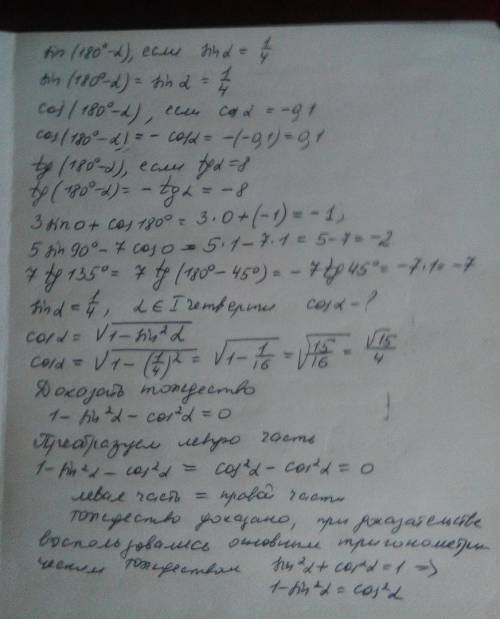 sin(180°-α), если sinα = 1/4
sin(180°-α) = sinα = 1/4
cos(180°-α), если cosα = -0,1
cos(180°-α) = - cosα = -(-0,1) = 0,1
tg(180°-α), если tgα = 8
tg(180°-α) = - tgα = -8
3 sin0 + cos180° = 3·0 + (-1) = -1,
5 sin90° - 7 cos0 = 5·1 - 7·1 = 5-7 = -2
7 tg135° = 7 tg(180°-45°) = -7 tg45° = -7·1 = -7
sinα = 1/4, α ∈ I четверти cosα - ?
cosα = √(1-sin²α)
cosα = √(1-(1/4)²) = √(1-1/16) = √(15/16) = √15/4
Доказать тождество
1 - sin²α - cos²α = 0
Преобразуем левую часть
1-sin²α - cos²α = cos²α - cos²α = 0
левая часть = правой части
тождество доказано, при доказательстве
воспользовались основным тригонометри-
ческим тождеством sin²α + cos²α = 1 =>
1-sin²α = cos²α